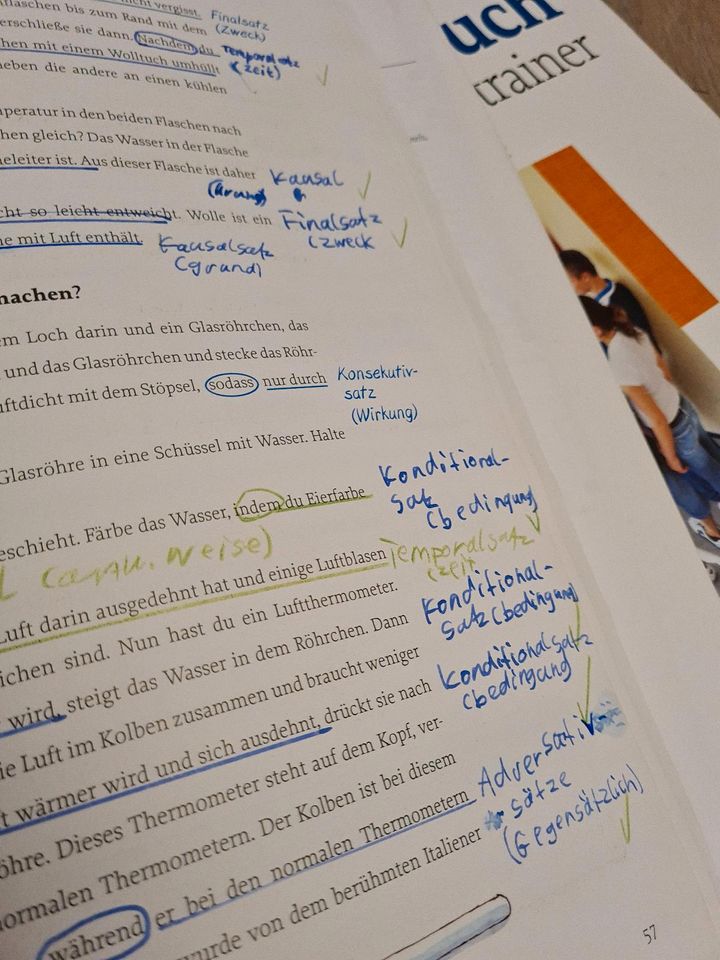 nicht vergisst. Finalsatz
flaschen bis zum Rand mit dem (Zweck)
erschließe sie dann. Nachdem du Temporalsatz
hen mit einem Wolltuch umhüllt (Zeit)
eben die andere an einen kühlen
peratur in den beiden Flaschen nach
hen gleich? Das Wasser in der Flasche
eleiter ist. Aus dieser Flasche ist daher Kausal
(Grund)
cht so leicht entweicht. Wolle ist ein Finalsatz
e mit Luft enthält. Kausalsatz (Zweck
(grund)
machen?
m Loch darin und ein Glasröhrchen, das
und das Glasröhrchen und stecke das Röhr-
ftdicht mit dem Stöpsel, sodass nur durch Konsekutiv-
satz
(Wirkung)
Glasröhre in eine Schüssel mit Wasser. Halte
eschieht. Färbe das Wasser, indem du Eierfarbe Konditional-
satz
(bedingung)
weise)
Luft darin ausgedehnt hat und einige Luftblasen Temporalsatz
(zeit
ichen sind. Nun hast du ein Luftthermometer.
wird, steigt das Wasser in dem Röhrchen. Dann Konditional-
satz (bedingung)
ie Luft im Kolben zusammen und braucht weniger
t wärmer wird und sich ausdehnt, drückt sie nach Konditionalsatz
(bedingung
öhre. Dieses Thermometer steht auf dem Kopf, ver-
normalen Thermometern. Der Kolben ist bei diesem
während er bei den normalen Thermometern Adversativ
sätze
(Gegensätzlich)
wurde von dem berühmten Italiener
57
uch
trainer